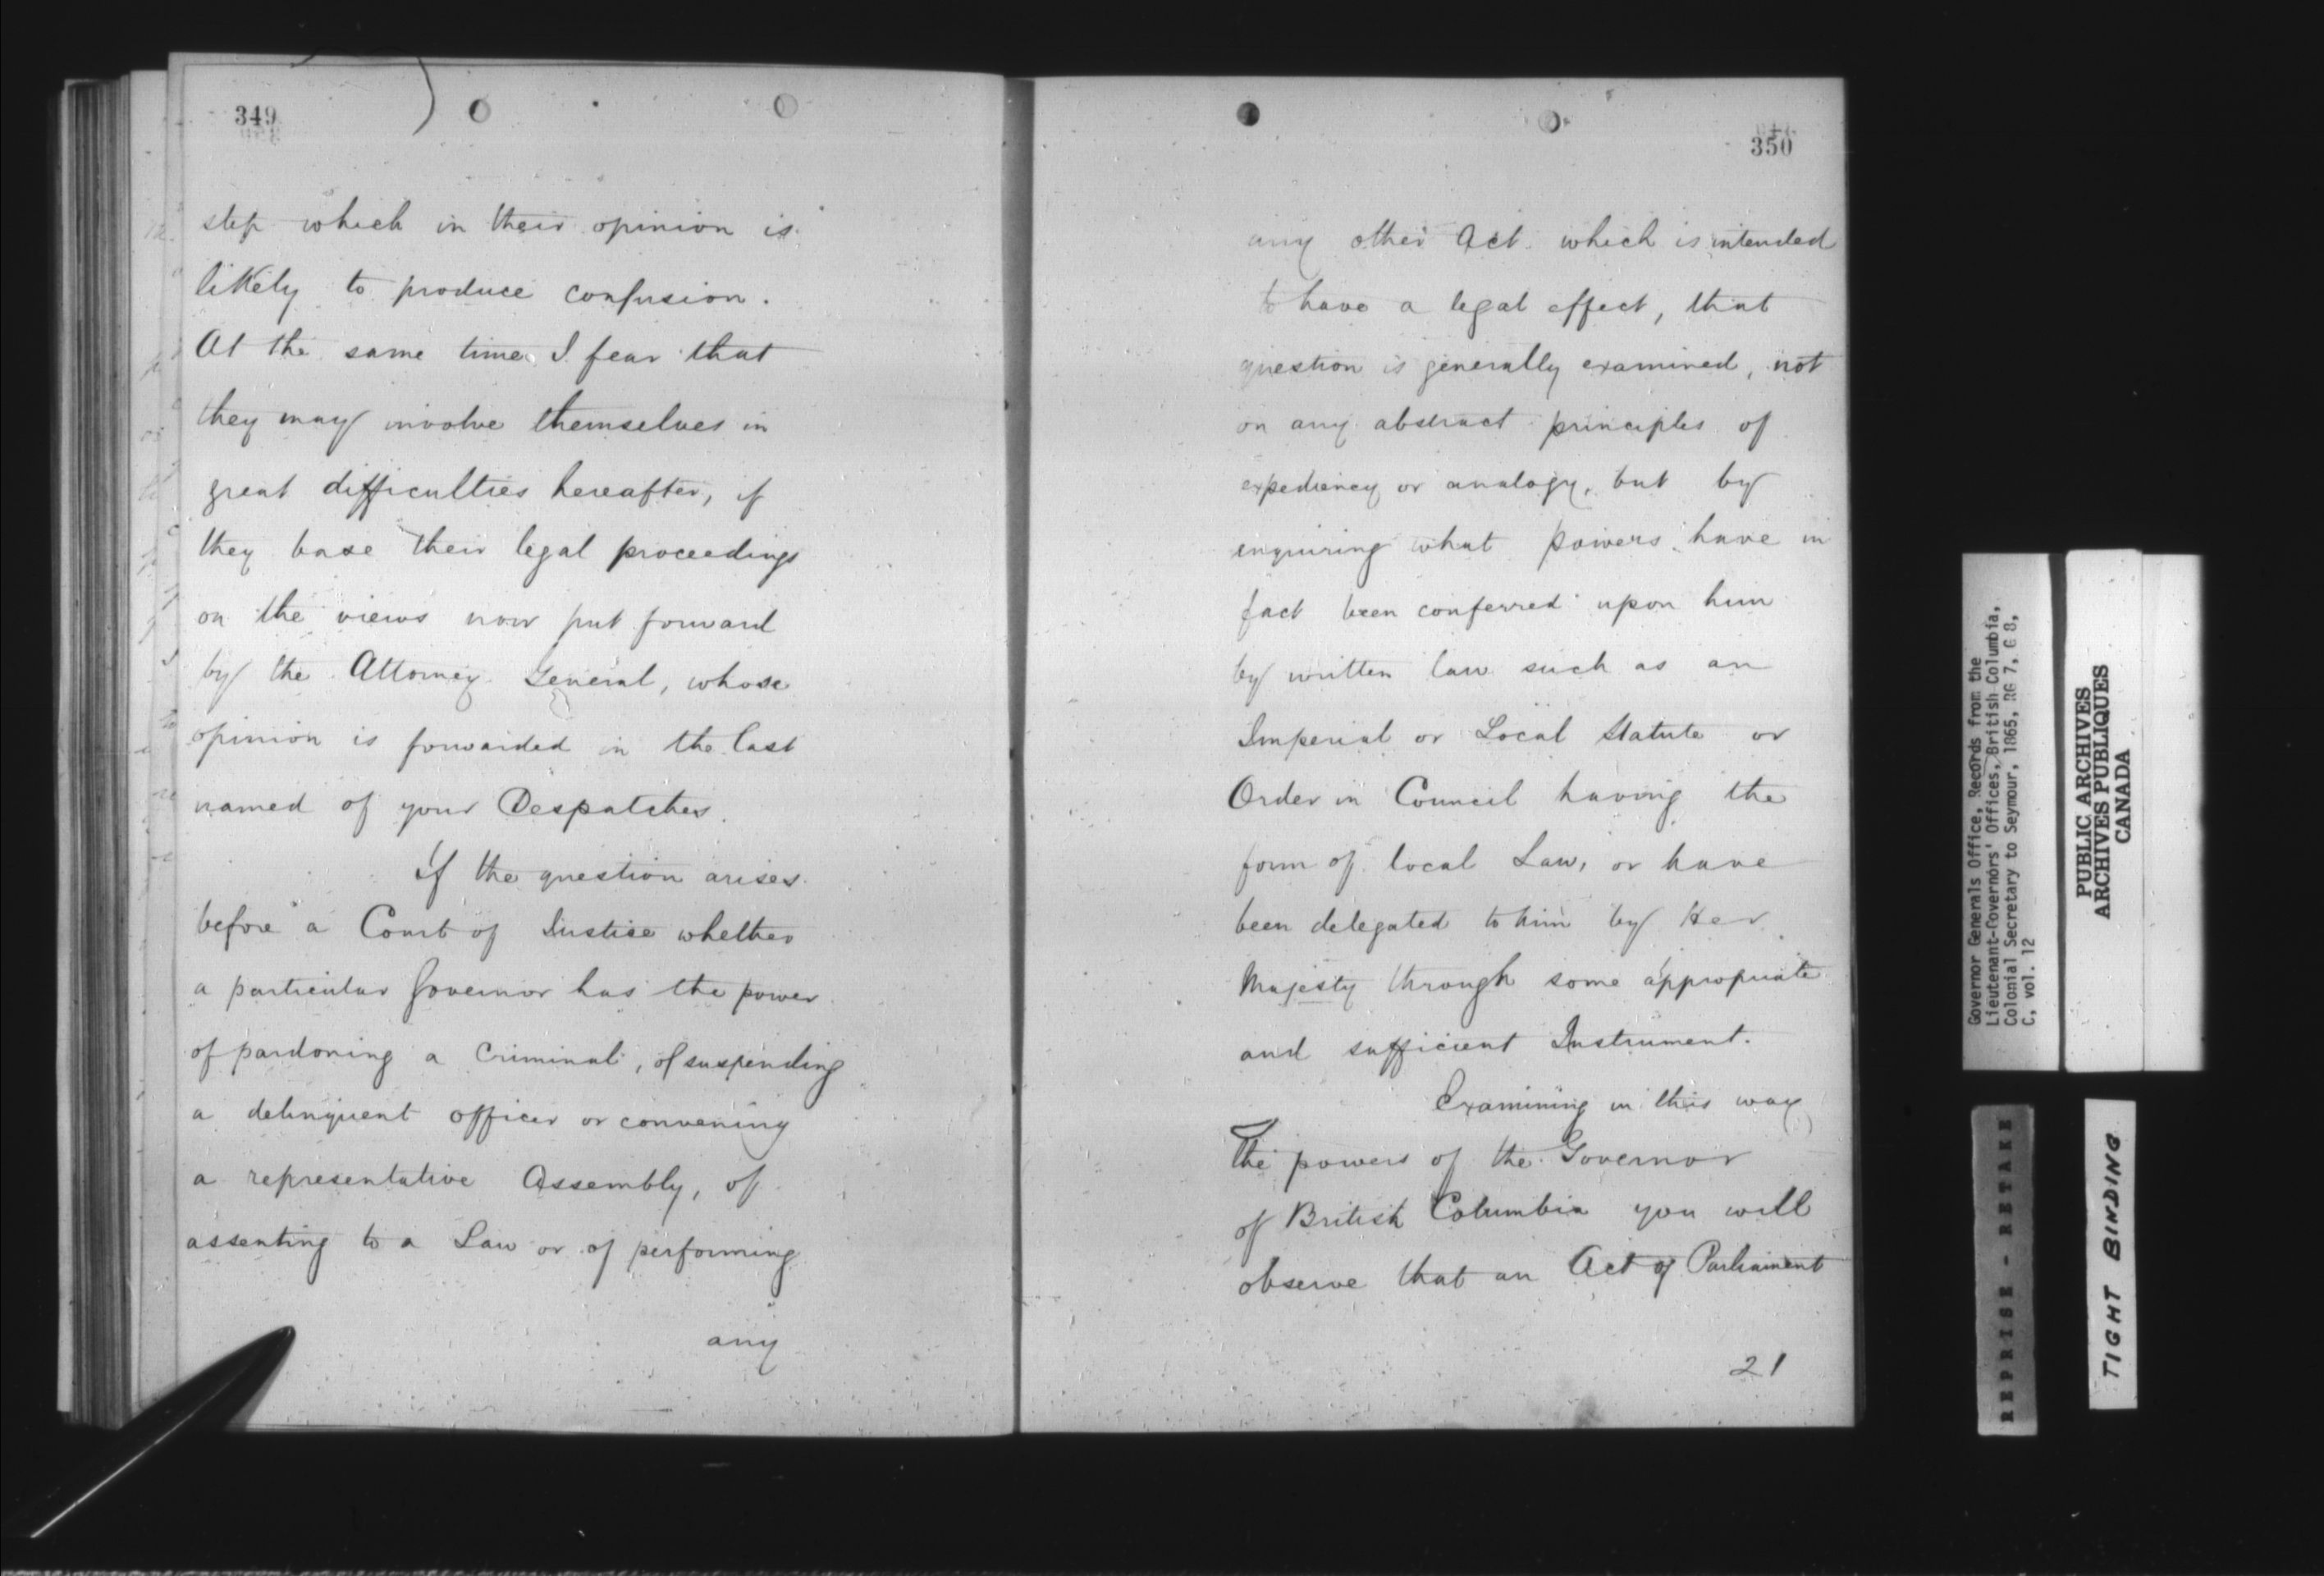 349
step which in their opinion is
likely to produce confusion.
At the same time I fear that
they may involve themselves in
great difficulties hereafter, if
they base their legal proceedings
on the views now put forward
by the Attorney General, whose
opinion is forwarded in the last
named of your Despatches.
If the question arises
before a Court of Justice whether
a particular Governor has the power
of pardoning a Criminal, of suspending
a delinquent officer or convening
a representative Assembly, of
assenting to a Law or of performing
any
350
any other Act which is intended
to have a legal effect, that
question is generally examined, not
on any abstract principles of
expediency or analogy, but by
enquiring what powers have in
fact been conferred upon him
by written law such as an
Imperial or Local Statute or
Order in Council having the
form of local Law, or have
been delegated to him by Her
Majesty through some appropriate
and sufficient Instrument.
Examining in this way
The powers of the Governor
of British Columbia you will
observe that an Act of Parliament
21
Governor Generals Office, Records from the
Lieutenant-Governors' Offices, British Columbia,
Colonial Secretary to Seymour, 1865, RG 7, G 8,
C, vol. 12
PUBLIC ARCHIVES
ARCHIVES PUBLIQUES
CANADA
REPRISE - RETAKE
TIGHT BINDING